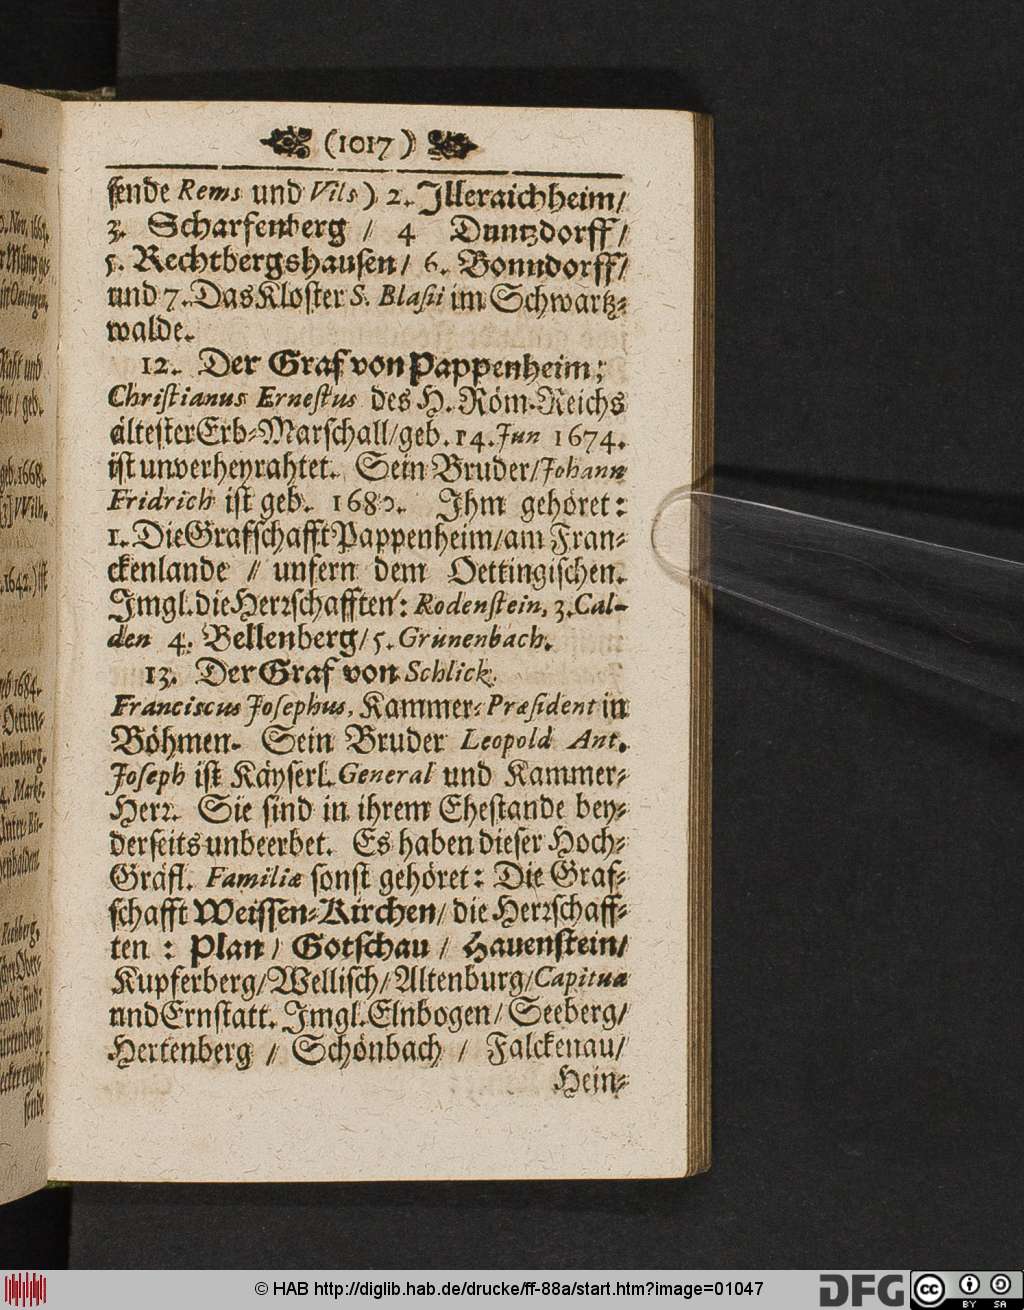 (1017)
sende Rems und Vils) 2. Jlleraichheim/
3. Scharfenberg / 4 Duntzdorff/
5. Rechtbergshausen/ 6. Bonndorff/
und 7. Das Kloster S. Blasii im Schwartz-
walde.
12. Der Graf von Pappenheim;
Christianus Ernestus des H. Röm. Reichs
ältester Erb-Marschall/geb. 14. Jun 1674.
ist unverheyrahtet. Sein Bruder/Johann
Fridrich ist geb. 1680. Ihm gehöret:
1. Die Grafschafft Pappenheim/am Fran-
ckenlande / unfern dem Oettingischen.
Jmgl. die Herrschafften: Rodenstein, 3. Cal-
den 4. Bellenberg/5. Grünenbach.
13. Der Graf von Schlick.
Franciscus Josephus, Kammer-Præsident in
Böhmen. Sein Bruder Leopold Ant.
Joseph ist Käyserl. General und Kammer-
Herr. Sie sind in ihrem Ehestande bey-
derseits unbeerbet. Es haben dieser Hoch-
Gräfl. Familiæ sonst gehöret: Die Graf-
schafft Weissen-Kirchen/ die Herrschaff-
ten : Plan / Gotschau / Hauenstein/
Kupferberg/Wellisch/Altenburg/Capitua
und Ernstatt. Jmgl. Elnbogen/Seeberg/
Hertenberg / Schönbach / Falckenau/
Hein-
© HAB http://diglib.hab.de/drucke/ff-88a/start.htm?image=01047
DFG
cc
BY SA